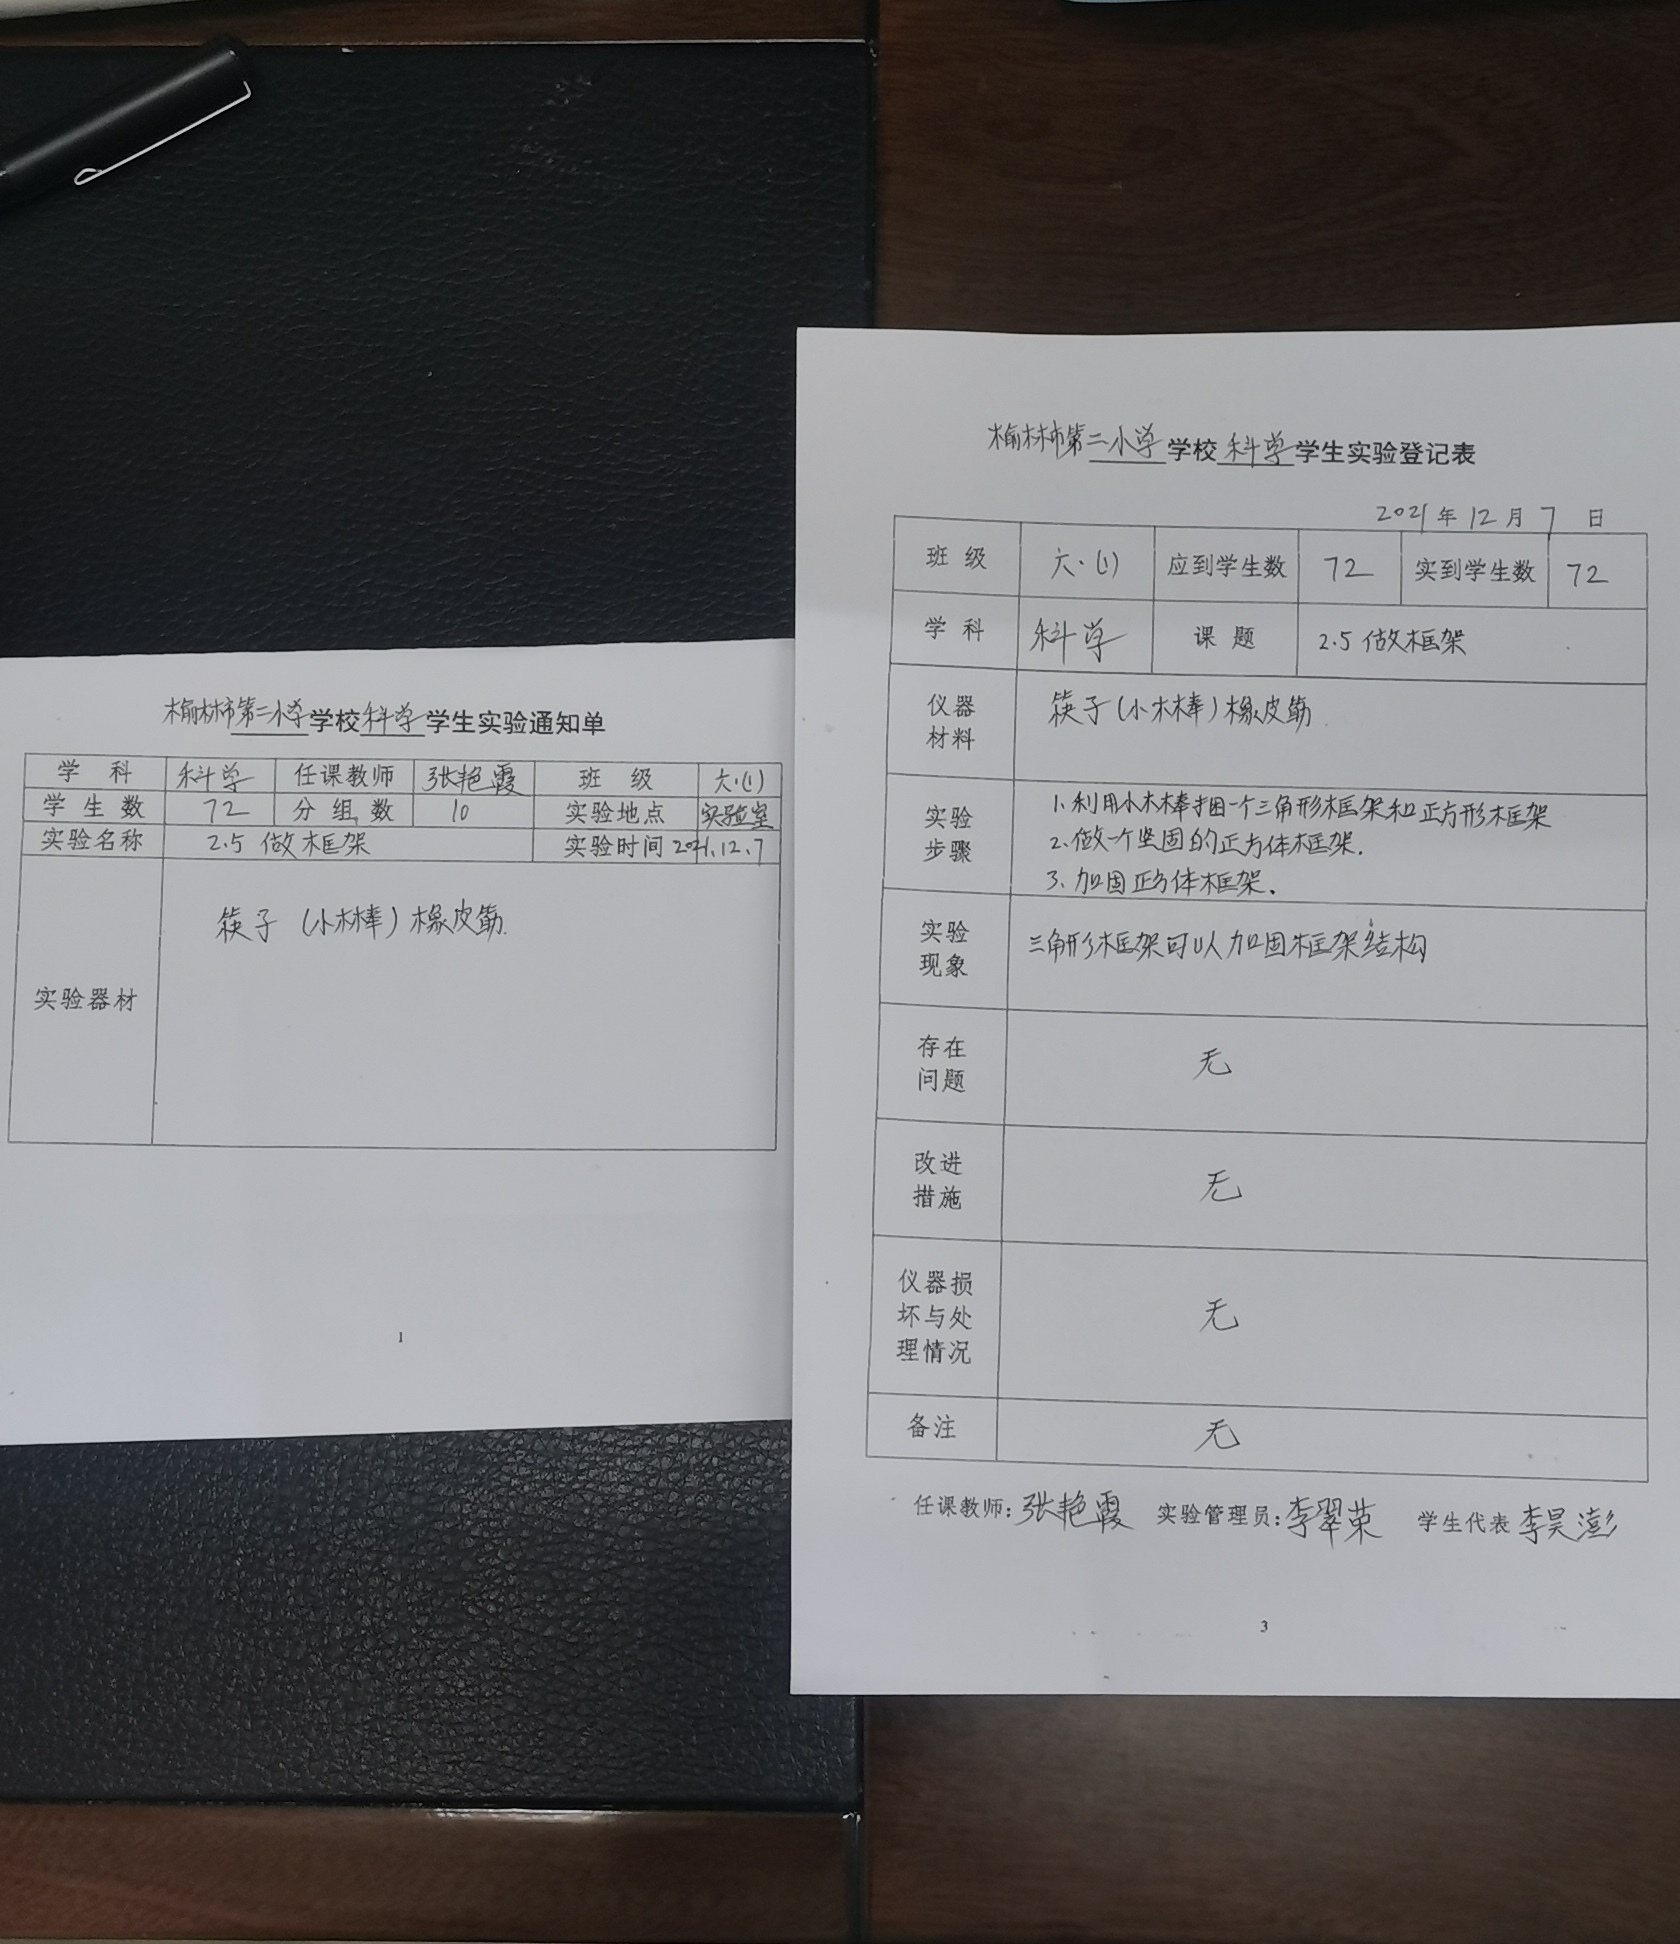 榆林市第二小学学校科学学生实验通知单
学科 科学 任课教师 张艳霞 班级 六.(1)
学生数 72 分组数 10 实验地点 实验室
实验名称 2.5 做框架 实验时间 2021.12.7
筷子 (小木棒) 橡皮筋.
实验器材
1
榆林市第二小学学校科学学生实验登记表
2021年12月7日
班级 六.(1) 应到学生数 72 实到学生数 72
学科 科学 课题 2.5 做框架
仪器
材料
筷子 (小木棒) 橡皮筋
实验
步骤
1. 利用小木棒捆一个三角形框架和正方形框架
2. 做一个坚固的正方体框架.
3. 加固正方体框架.
实验
现象
三角形框架可以加固框架结构
存在
问题
无
改进
措施
无
仪器损
坏与处
理情况
无
备注
无
任课教师: 张艳霞 实验管理员: 李翠荣 学生代表 李昊澎
3